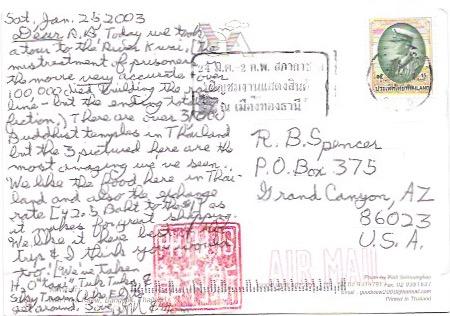 Sat, Jan. 25 2003
Dear R.B. Today we took
a tour to the River Kwai. [The
mistreatment of prisoners
the movie very accurate - over
100 000 died building the rail
line - but the ending totally
fiction.) There are over 31000
Buddhist temples in Thailand
but the 3 pictured here are the
most amazing we've seen.
We like the food here in Thai-
land and also the exchange
rate [42.5 Baht to the $] as
it makes for great shopping.
We like it here best of our
trip & I think you would
too! We've taken
Tuk Tuks &
Sky Tram
get around.
24 ม.ค.-2 ก.พ. สภากาชาด
ณ เมืองทองธานี
ประเทศไทย THAILAND
R. B. Spencer
P.O. Box 375
Grand Canyon, AZ
86023
U.S.A.
AIR MAIL
Printed in Thailand